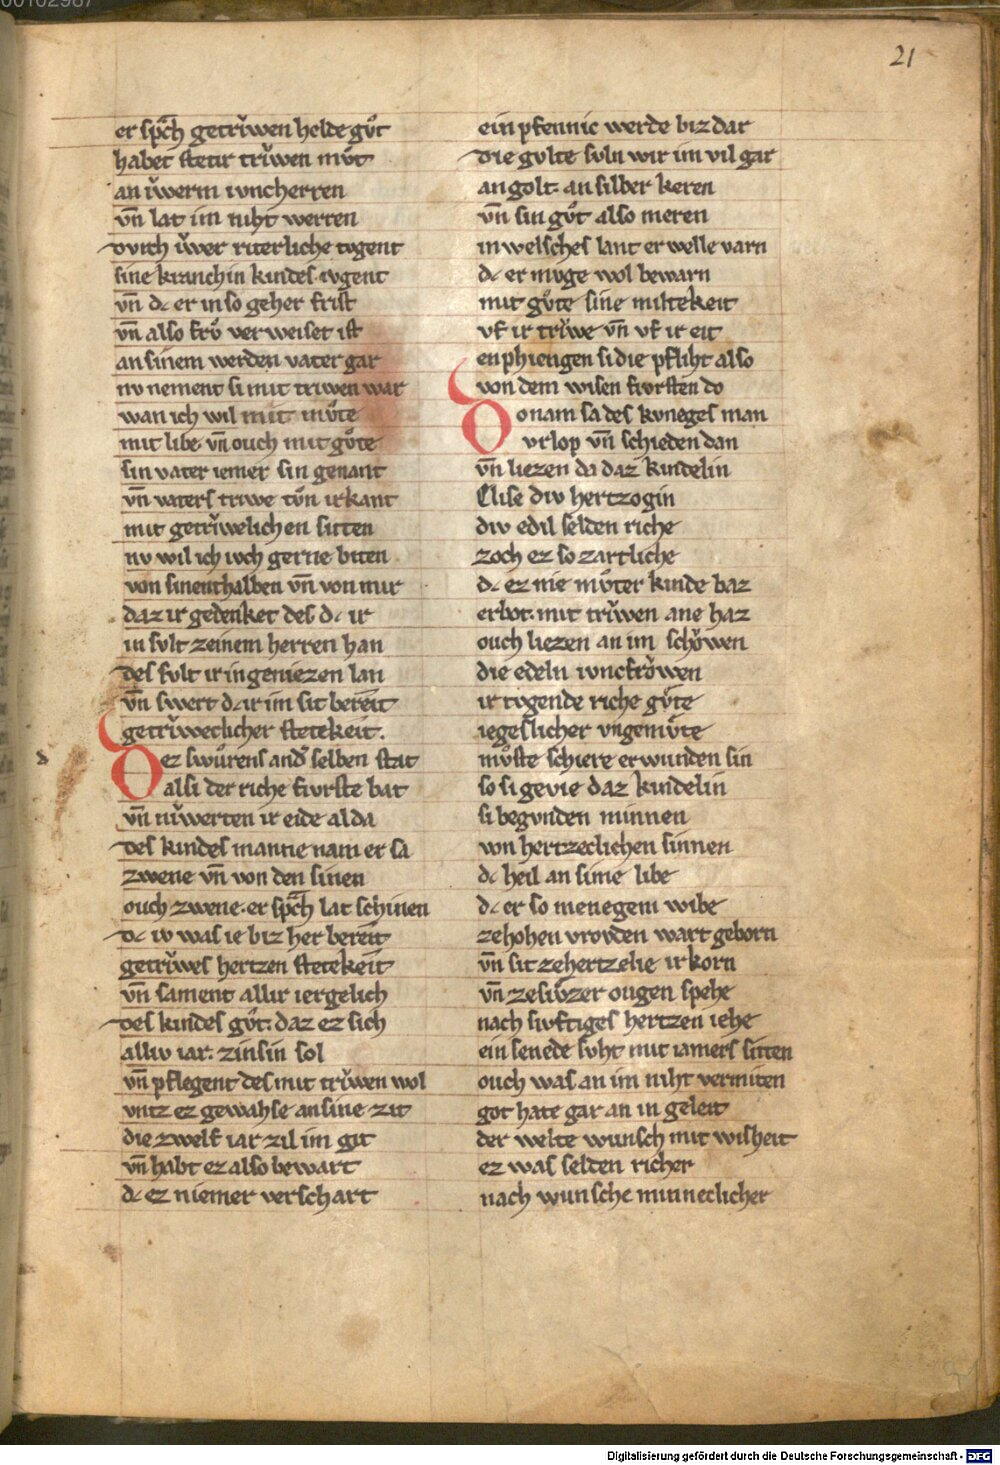 21
er sp̄ch getrv̌wen helde gůt
habet steter trv̌wen můt
an v̌werm iuncherren
vn̄ lat im niht werren
dvrch v̌wer riterliche tvgent
sine kranchin kindes ivgent
vn̄ dc er in so geher frist
vn̄ also frů verweiset ist
an sinem werden vater gar
nv nement si mit triwen war
wan ich wil mit můte
mit libe vn̄ ouch mit gůte
sin vater iemer sin genant
vn̄ vaters triwe tůn irkant
mit getrv̌welichen sitten
nv wil ich ivch gerne biten
von sinenthalben vn̄ von mir
daz ir gedenket des dc ir
in svlt zeinem herren han
des svlt ir in geniezen lan
vn̄ swert dc ir im sit bereit
getrv̌weclicher stetekeit.
Dez swůrens and̄ selben stat
als i der riche fivrste bat
vn̄ niv̌werten ir eide al da
des kindes manne nam er sa
zwene vn̄ von den sinen
ouch zwene. er sp̄ch lat schinen
dc iv was ie biz her bereit
getrv̌wes hertzen stetekeit
vn̄ sament allir iergelich
des kindes gůt. daz ez sich
alliv iar. zinsin sol
vn̄ pflegent des mit trv̌wen wol
vntz ez gewahse an sine zit
die zwelf iar zil im git
vn̄ habt ez also bewart
dc ez niemer verschart
ein pfennic werde biz dar
die gvlte svln wir im vil gar
an golt. an silber keren
vn̄ sin gůt also meren
in welsches lant er welle varn
dc er mvge wol bewarn
mit gůte sine miltekeit
vf ir trv̌we vn̄ vf ir eit
enphiengen si die pfliht also
von dem wisen fivrsten do
Do nam sa des kvneges man
vrlop vn̄ schieden dan
vn̄ liezen da daz kindelin
Elise div hertzogin
div edil selden riche
zoch ez so zartliche
dc ez nie můter kinde baz
erbot. mit trv̌wen ane haz
ouch liezen an im schǒwen
die edeln iuncfrǒwen
ir tvgende riche gv̊te
iegeslicher vngemv̊te
můste schiere erwunden sin
so si gevie daz kindelin
si begvnden minnen
von hertzeclichen sinnen
dc heil an sime libe
dc er so menegem wibe
ze hohen vrovden wart geborn
vn̄ sit ze hertzelie irkorn
vn̄ ze sv̊zer ougen spehe
nach sivftiges hertzen iehe
ein senede svht mit iamers sitten
ouch was an im niht vermiten
got hate gar an in geleit
der welte wunsch mit wisheit
ez was selden richer
nach wunsche minneclicher
Digitalisierung gefördert durch die Deutsche Forschungsgemeinschaft - DFG